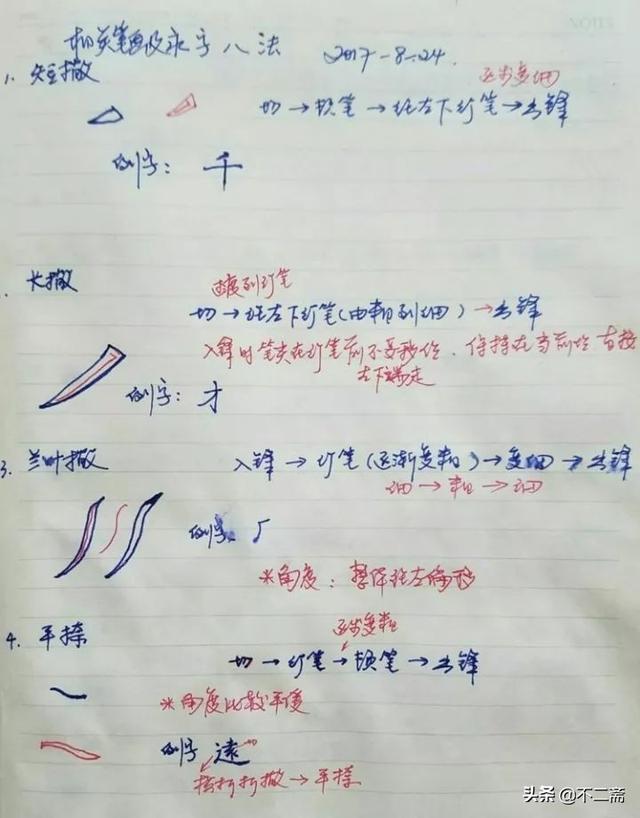 相关笔画及永字八法 2017-8.24.
1. 短撇
逐步变细
切→顿笔→往左下行笔→出锋
例字: 千
长撇
过度到行笔
切→往左下行笔(由粗到细)→出锋
入锋时笔尖在行笔前不要移位、保持在当前位直接
左下端走
例字: 才
3. 兰叶撇
入锋→行笔(逐渐变粗)→变细→出锋
细→粗→细
例字:
*角度: 整体往左偏移
4. 平捺
逐步变粗
切→行笔→顿笔→出锋
*角度比较平缓
例字 遠
横折折撇→平捺
头条@不二斋